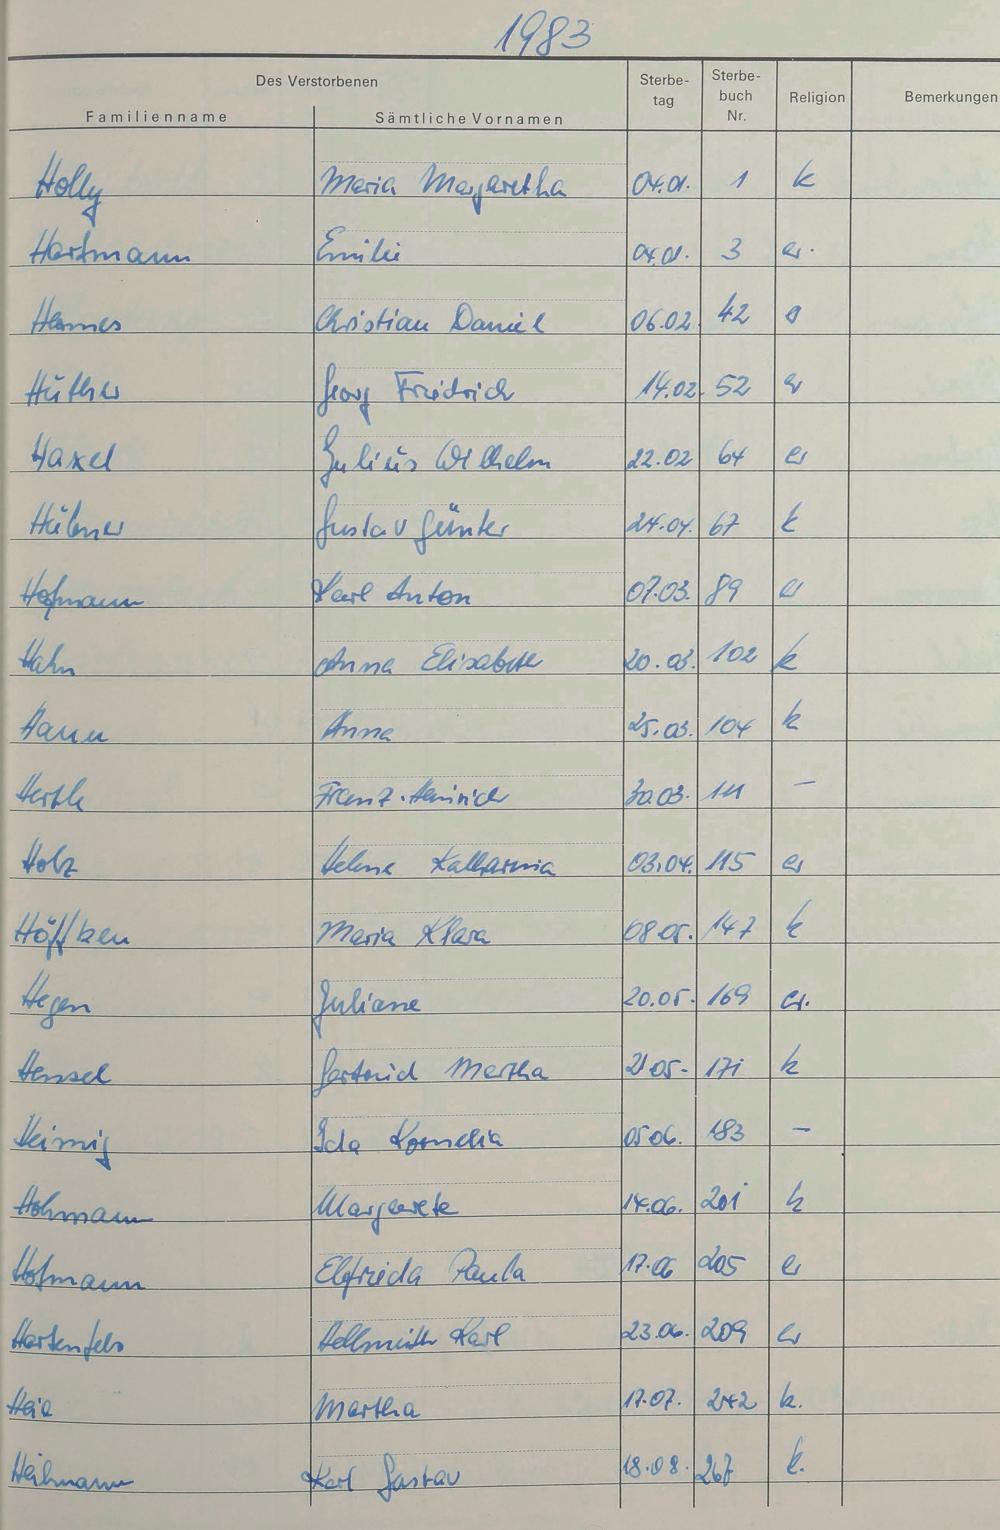 1983
Des Verstorbenen
Familienname Sämtliche Vornamen Sterbe-tag Sterbe-buch Nr. Religion Bemerkungen
Holly Maria Margaretha 04.01. 1 k
Hartmann Emilie 04.01. 3 ev.
Hermes Christian Daniel 06.02. 42 e
Hüther Georg Friedrich 14.02. 52 ev
Haxel Julius Wilhelm 22.02 64 ev
Hübner Gustav Günter 67 k
Hofmann Karl Anton 07.03. 89 ev
Hahn Anna Elisabeth 20.03. 102 k
Hann Anna 25.03. 104 k
Hertle Franz-Heinrich 30.03. 111 –
Holz Helene Katharina 03.04. 115 ev
Höffken Maria Klara 08.05. 147 k
Hegen Juliane 20.05. 169 ev.
Hensel Gertrud Martha 21.05. 171 k
Heimig Ida Kornelia 05.06. 183 –
Hohmann Margarete 14.06. 201 k
Hofmann Elfrieda Paula 17.06 205 ev
Hartenfels Hellmuth Karl 23.06. 209 ev
Martha 17.07. 242 k.
Heilmann Karl Gustav 18.08. 267 k.